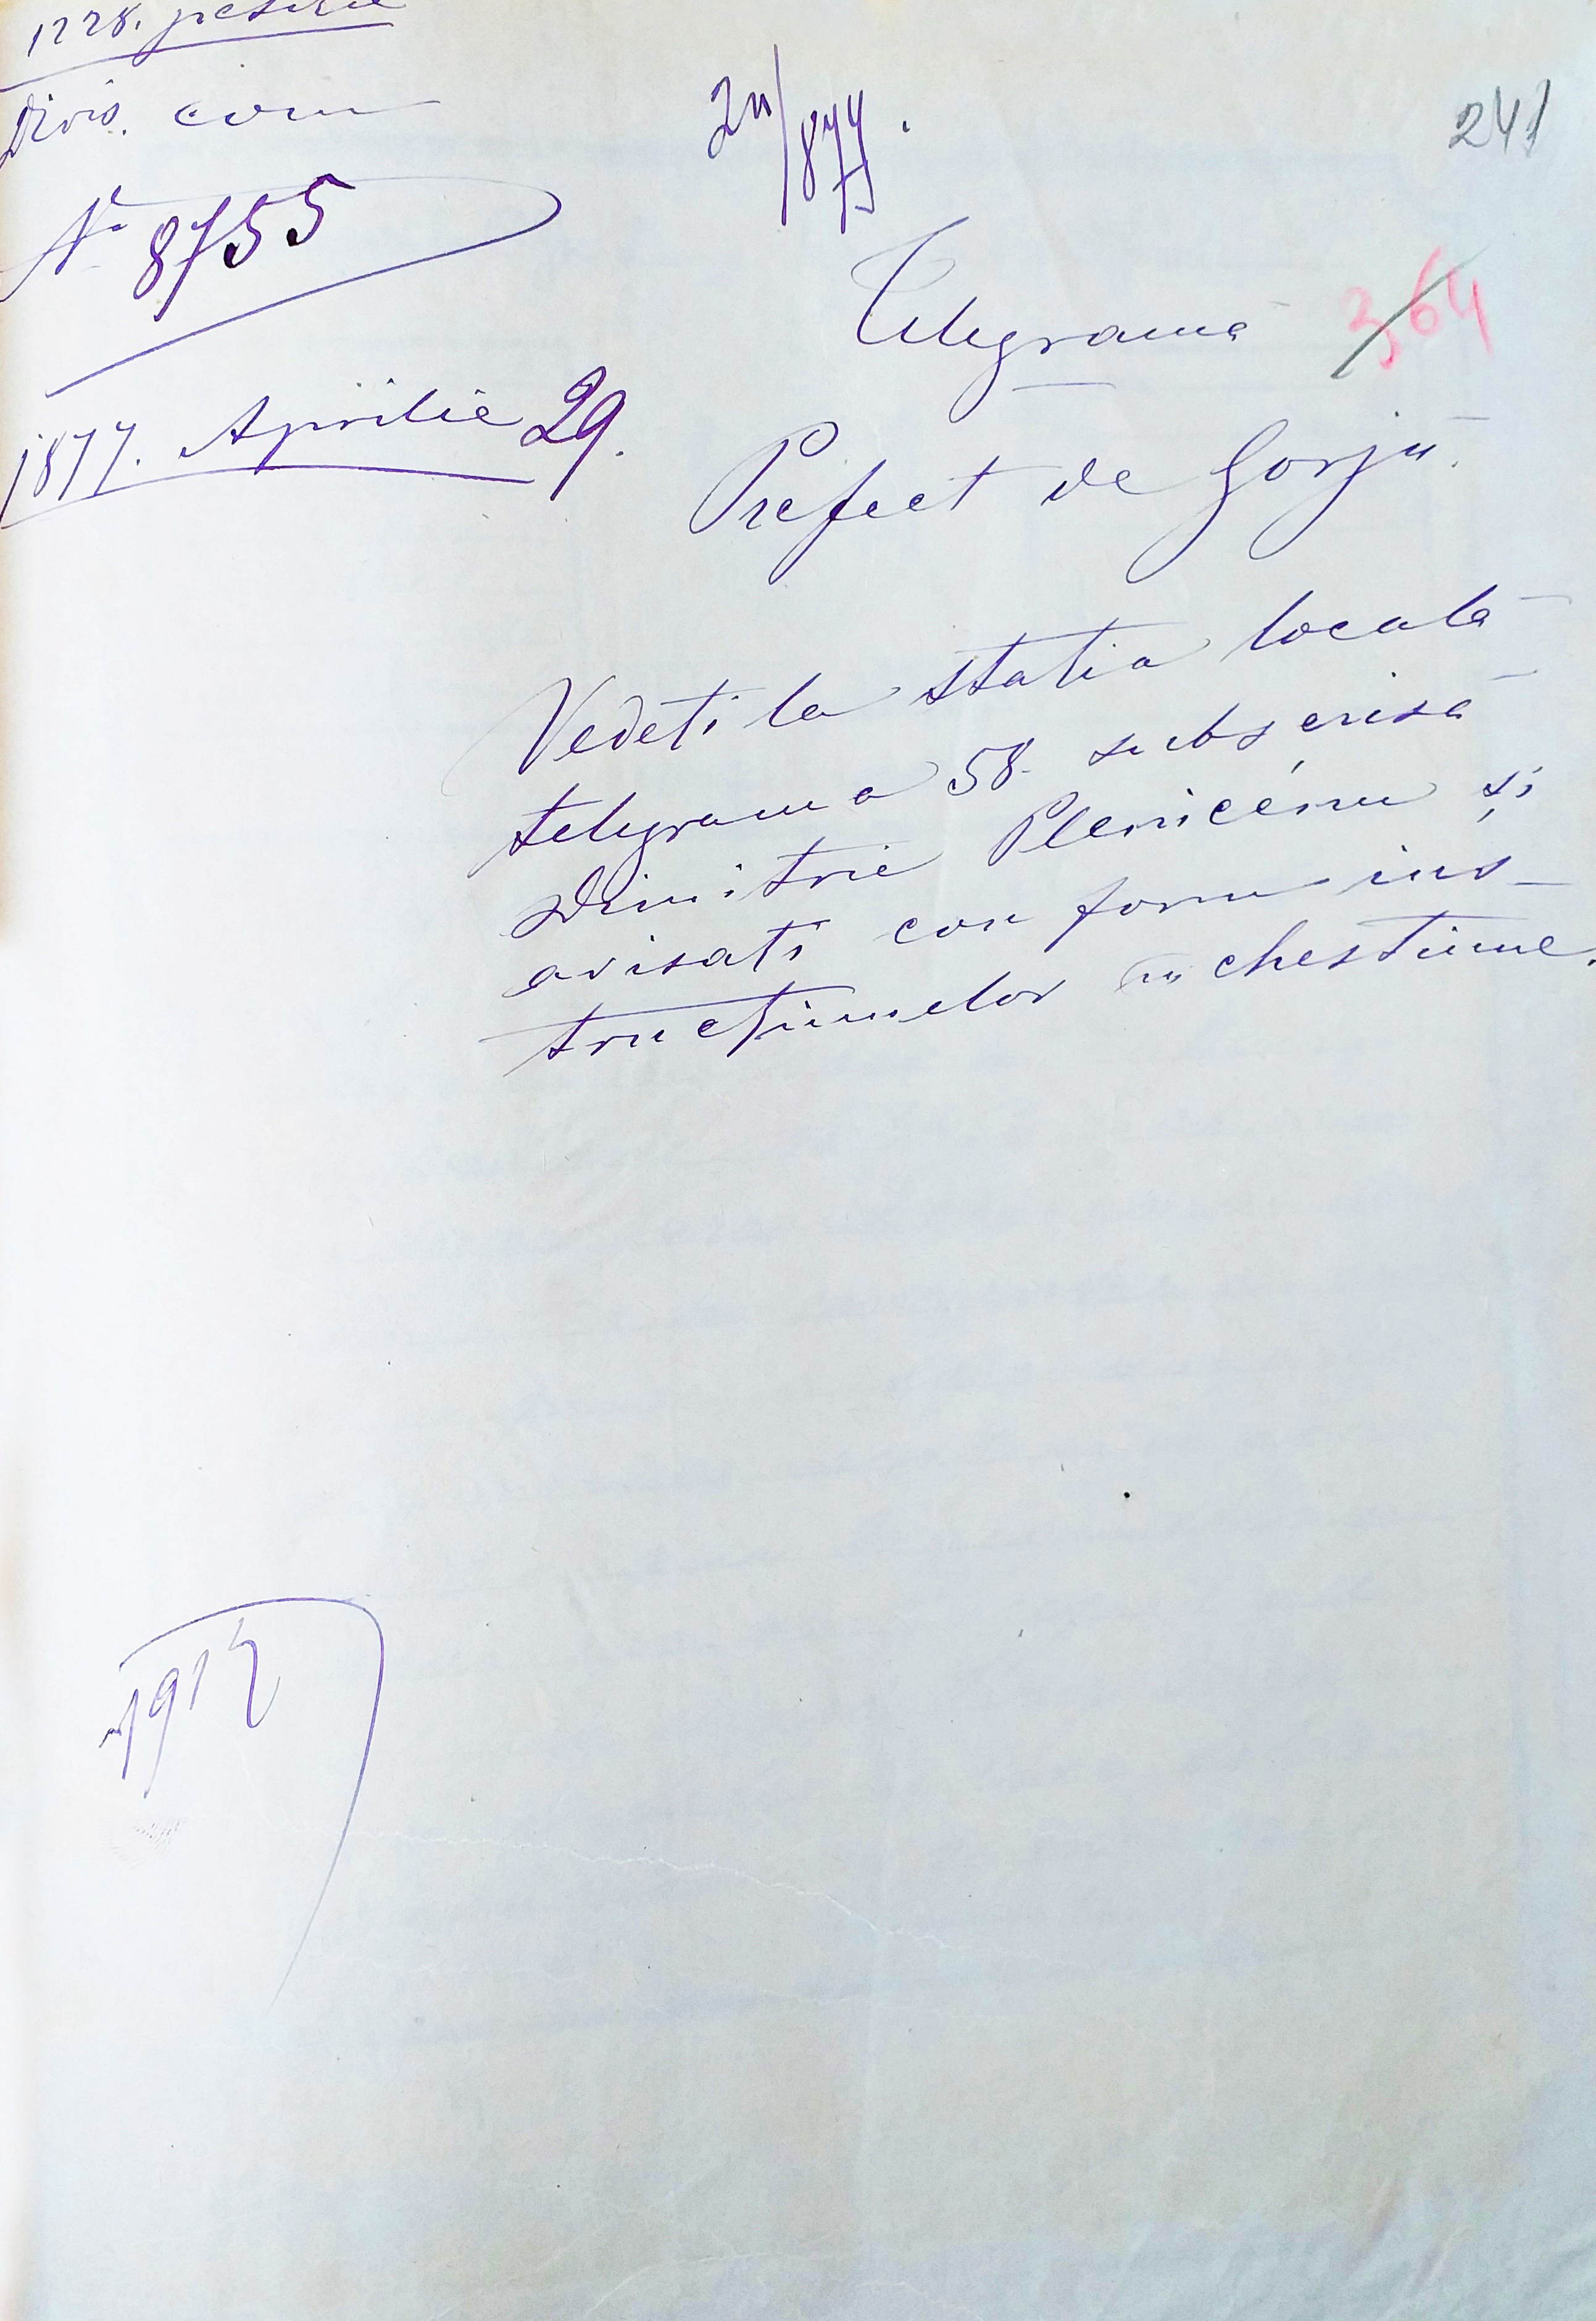 Divis. com
No 8755
1877. Aprilie 29.
24/877.
241
Telegramă
364
Prefect de Gorjŭ.
Vedeti la statia locală
telegrama 58. subscrisă
Dimitrie Plenicénu și
avisati conform ins-
trucțiunelor în chestiune.